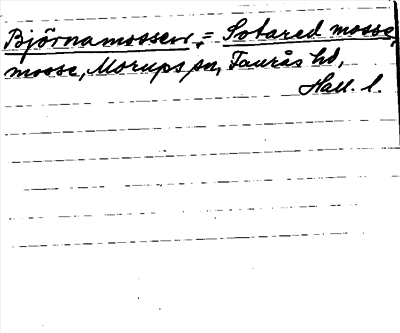 Björnamossen, = Sotared mosse,
mosse, Morups sn, Faurås hd,
Hall. l.